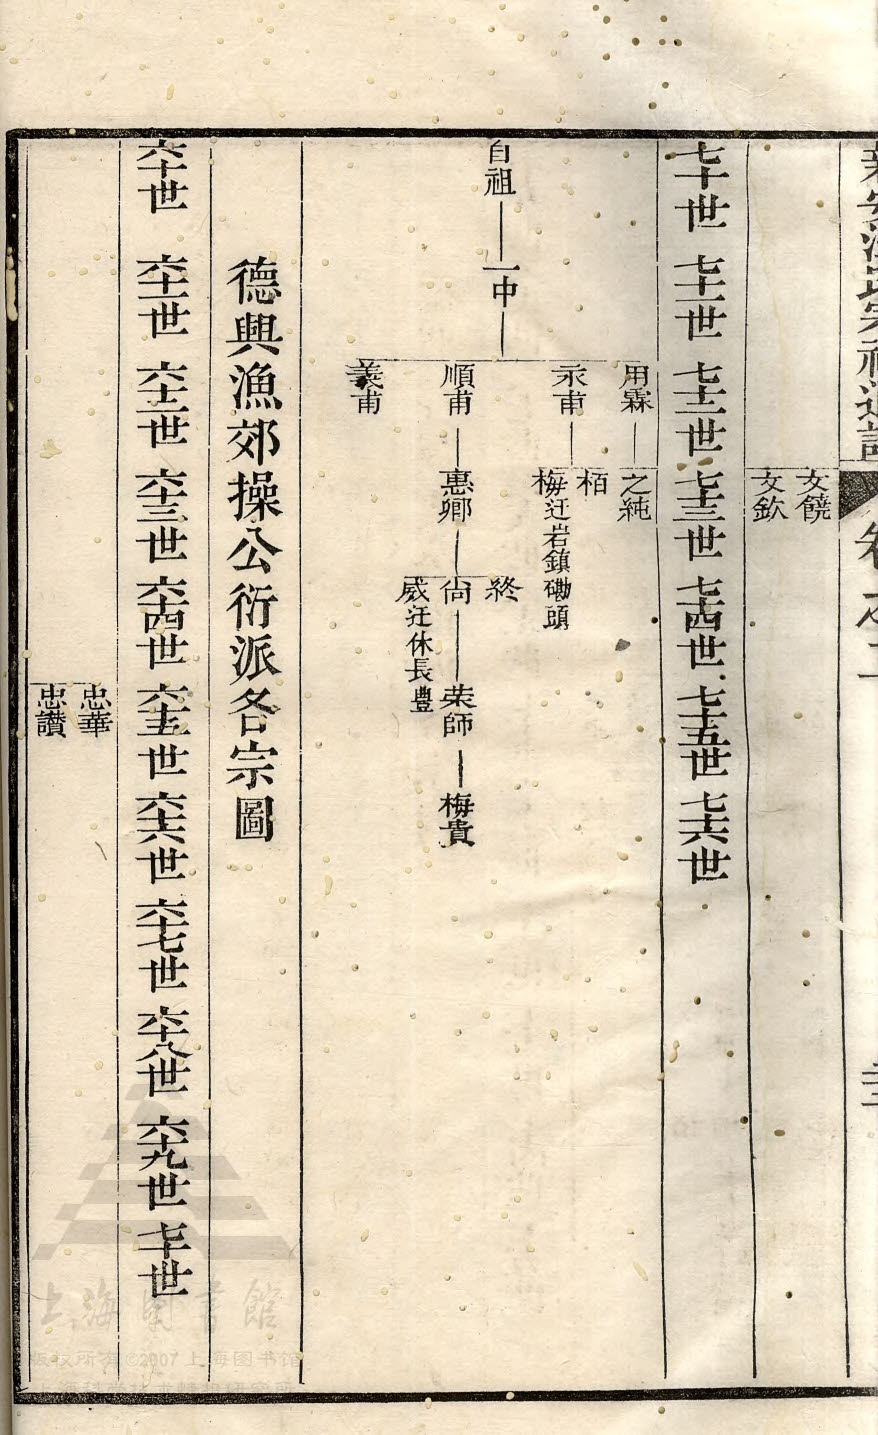 卷之二
文饒
文欽
七十世 七十一世 七十二世 七十三世 七十四世 七十五世 七十六世
自祖 一中
用霖 之純
永甫 栢
梅迁岩鎮磡頭
順甫 惠卿 尙 榮師 梅貴
終
威迁休長豊
義甫
德興漁郊操公衍派各宗圖
六十世 六十一世 六十二世 六十三世 六十四世 六十五世 六十六世 六十七世 六十八世 六十九世 七十世
忠華
忠讃
上海图书馆
版权所有©2007 上海图书馆